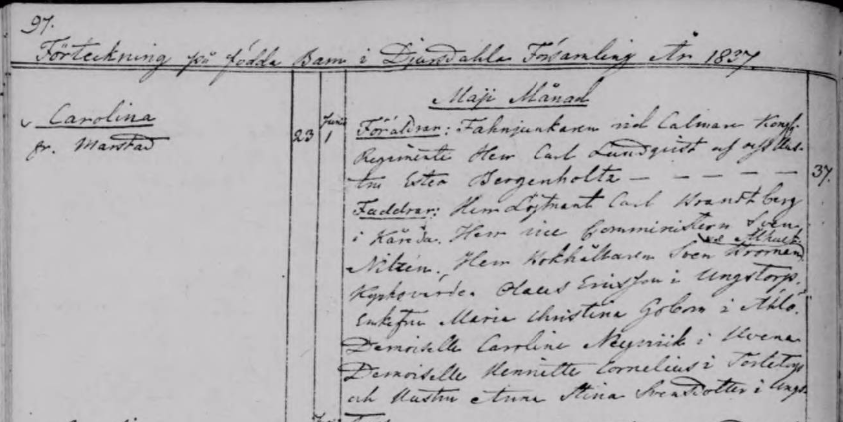 97.
Förteckning på födda Barn i Djursdahla Församling År 1837
Maji Månad
Carolina
fr. Marstad
23
Junii
1
Föräldrar: Fahnjunkaren vid Calmare Kongl.
Regimente Herr Carl Lundquist och
Ester Bergenholtz — — — — —
37.
Faddrar: Herr Löjtnant Carl Brandtberg
i Kåreda. Herr vice Comministern Sven
Nilzén, Herr Bokhållaren Sven
Kyrkovärden Olaus Ericsson i Ungstorp,
Enkefru Maria Christina Gobom i
Demoiselle Caroline i Hvena
Demoiselle Henriette Cornelius i
och Hustru Anna Stina Svensdotter i